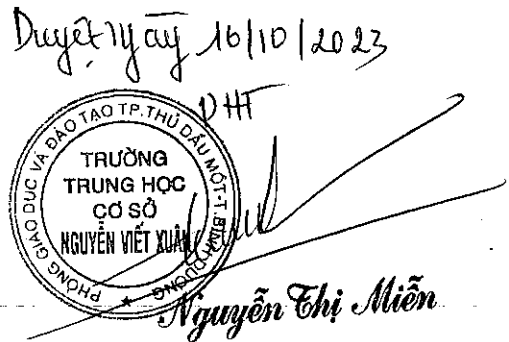 Duyệt ngày 16/10/2023
PHT
PHÒNG GIÁO DỤC VÀ ĐÀO TẠO TP.THỦ DẦU MỘT-T.BÌNH DƯƠNG
TRƯỜNG
TRUNG HỌC
CƠ SỞ
NGUYỄN VIẾT XUÂN
Nguyễn Thị Miễn